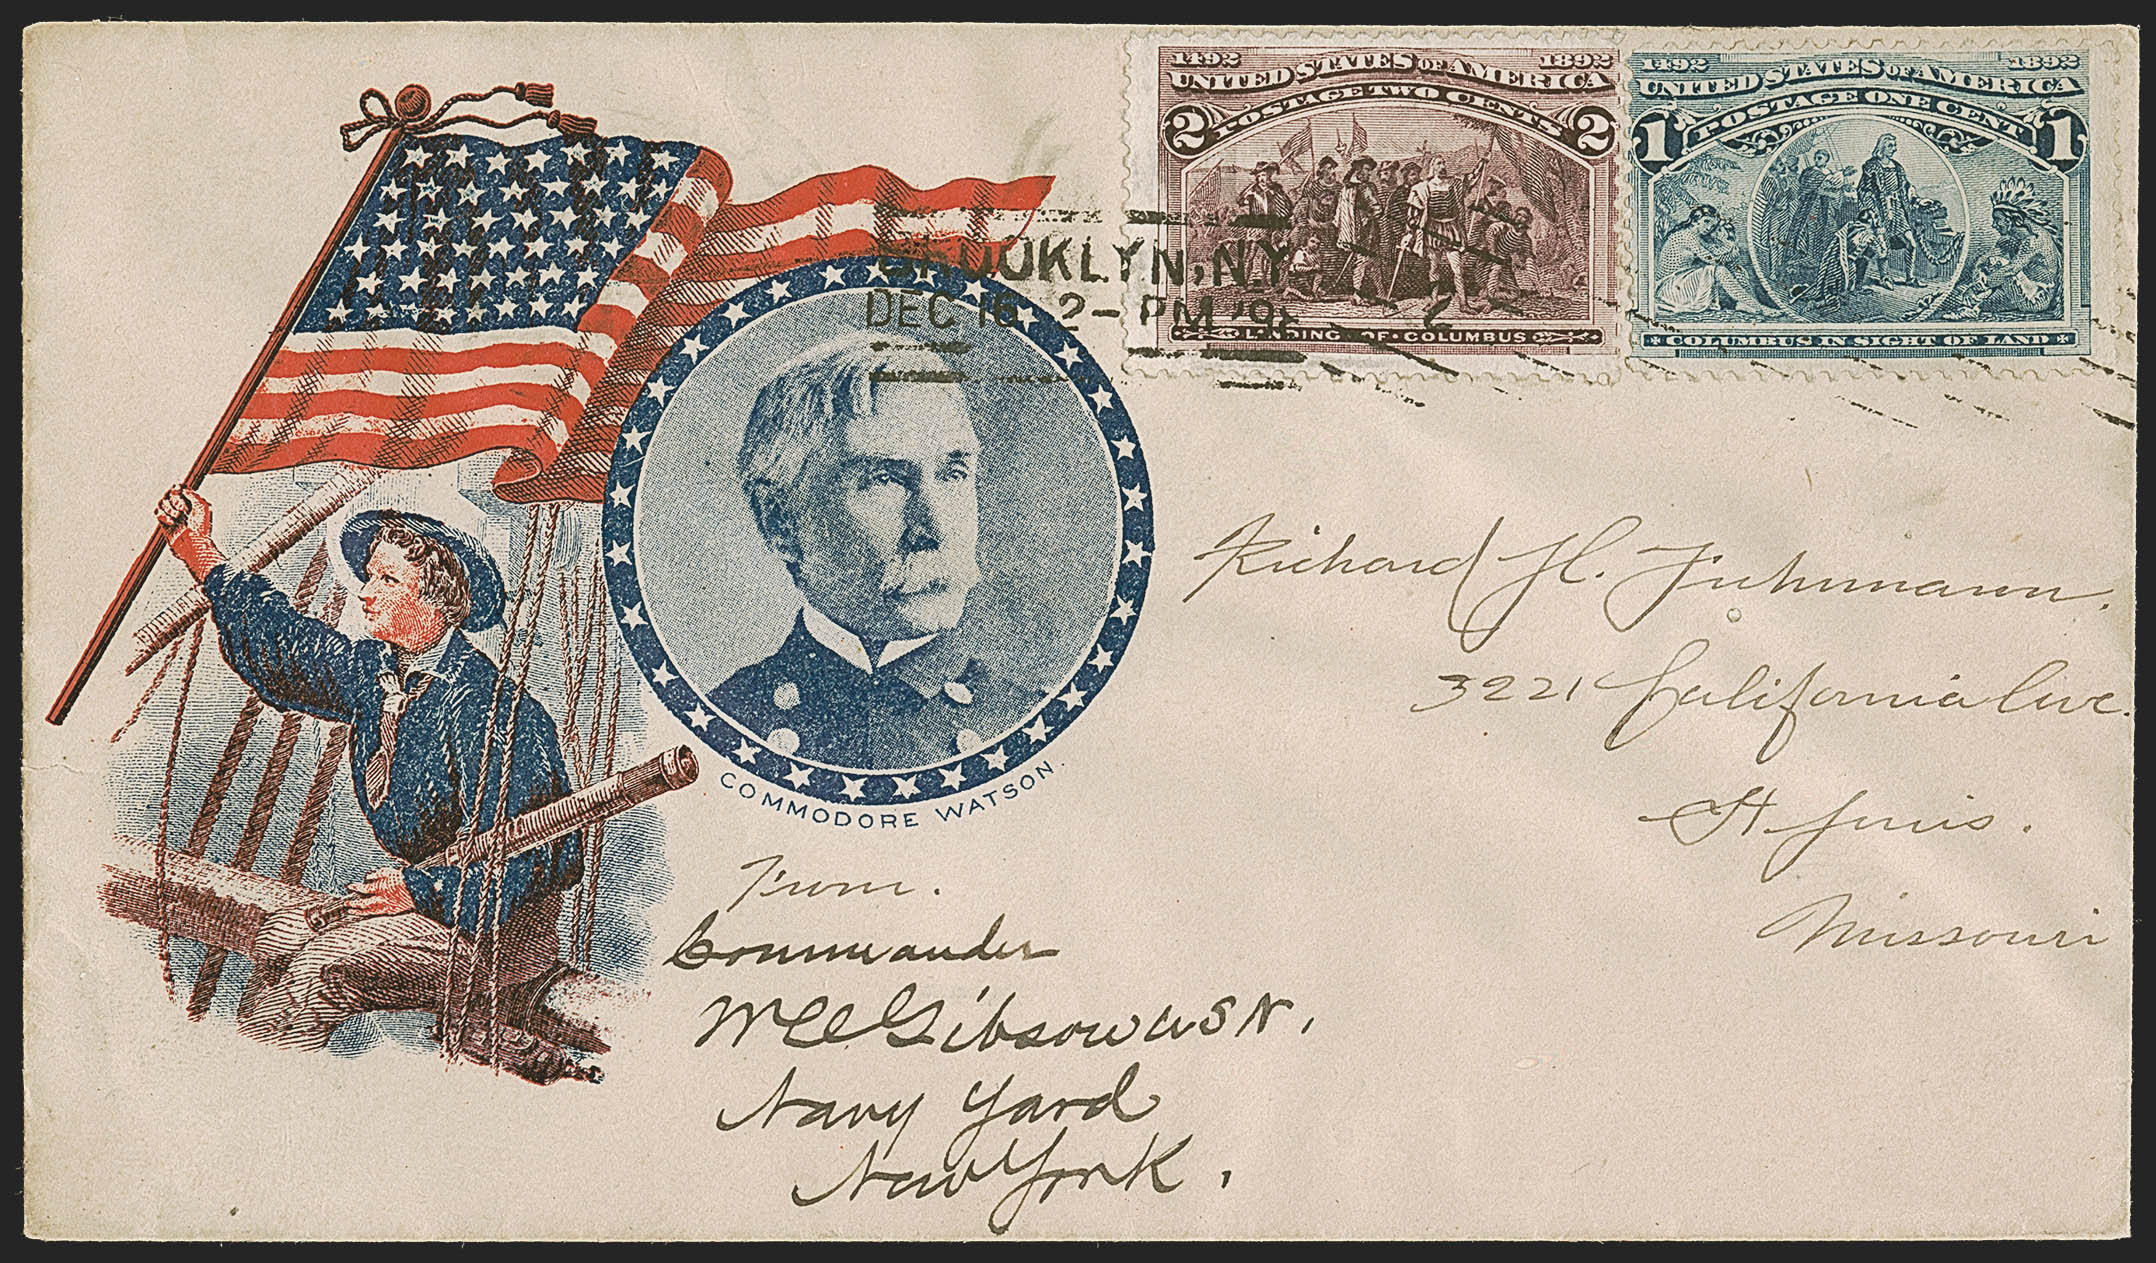 1492 1892
UNITED STATES OF AMERICA
POSTAGE TWO CENTS
2 2
LANDING OF COLUMBUS
1492 1892
UNITED STATES OF AMERICA
POSTAGE ONE CENT
1 1
COLUMBUS IN SIGHT OF LAND
BROOKLYN, N.Y.
DEC 16 2-PM
COMMODORE WATSON.
Richard H. Fuhrmann.
3221 California Ave.
St Louis.
Missouri
From.
Commander
W C Gibson USN.
Navy Yard
New York.